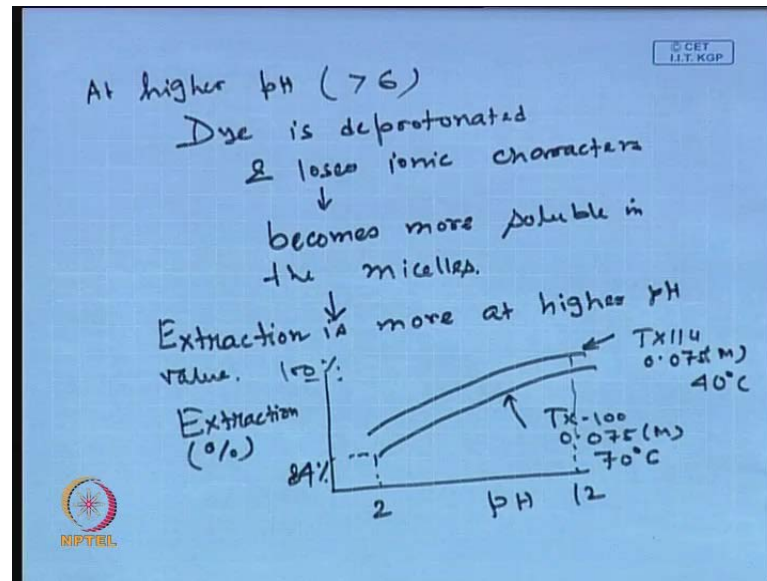 © CET
I.I.T. KGP
At higher pH (>6)
Dye is deprotonated
& loses ionic characters
↓
becomes more soluble in
the micelles.
↓
Extraction is more at higher pH
value.
100%
Extraction
(%)
84%
2
pH
12
TX114
0.075(M)
40°C
TX-100
0.075(M)
70°C
NPTEL